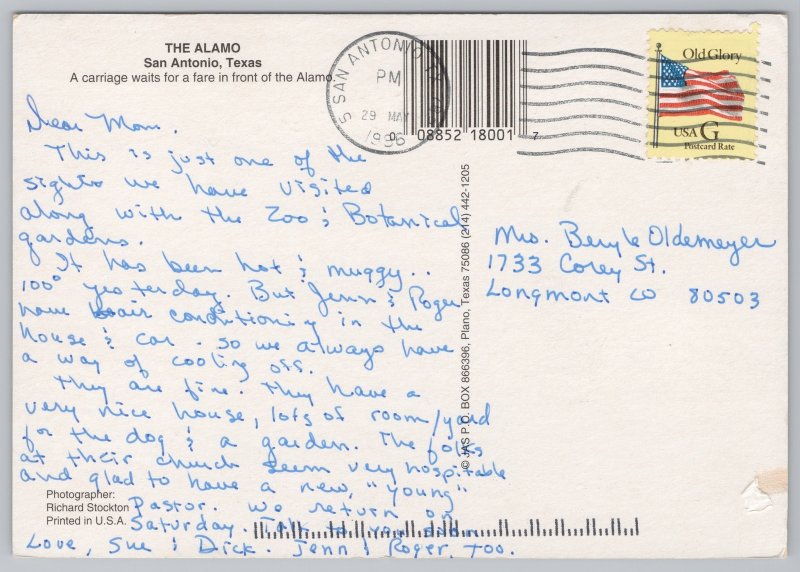 THE ALAMO
San Antonio, Texas
A carriage waits for a fare in front of the Alamo.
SAN ANTONIO
PM
29 MAY
1996
0 08852 18001 7
Old Glory
USA G
Postcard Rate
Dear Mom,
This is just one of the
sights we have visited
along with the Zoo & Botanical
gardens.
It has been hot & muggy..
100° yesterday. But Jenn & Roger
have air conditioning in the
house & car. So we always have
a way of cooling off.
They are fine. They have a
very nice house, lots of room/yard
for the dog & a garden. The folks
at their church seem very hospitable
and glad to have a new, "young"
Pastor. We return on
Saturday. Talk to you soon
Love, Sue & Dick. Jenn & Roger, too.
Photographer:
Richard Stockton
Printed in U.S.A.
© JAS P.O. BOX 866396, Plano, Texas 75086 (214) 442-1205
Mrs. Beryle Oldemeyer
1733 Corey St.
Longmont CO 80503